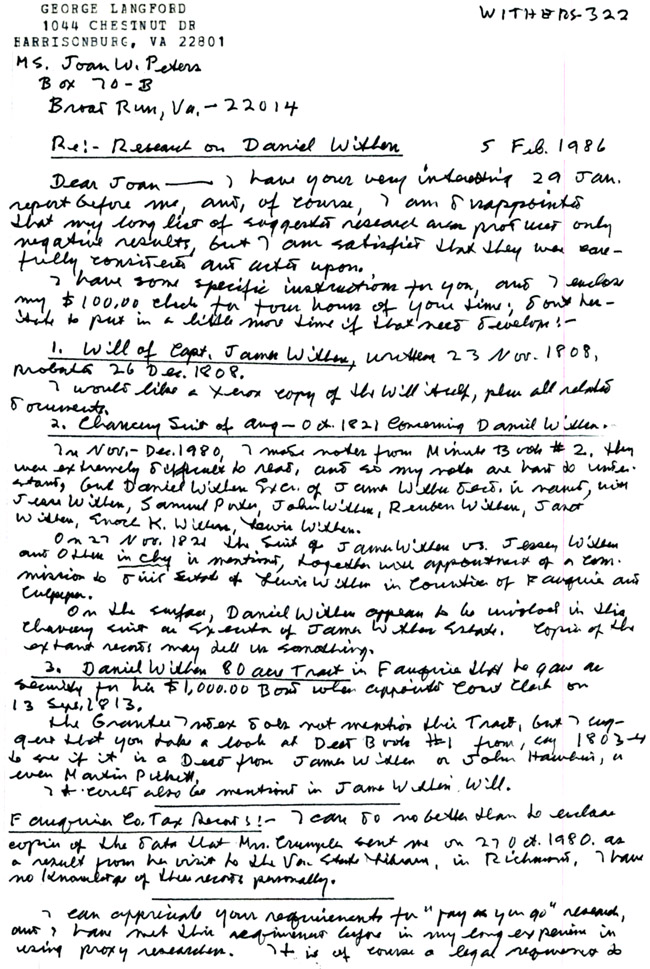 GEORGE LANGFORD
1044 CHESTNUT DR
HARRISONBURG, VA 22801
WITHERS-322
MS. Joan W. Peters
Box 70-B
Broad Run, Va. - 22014
Re:- Research on Daniel Withers
5 Feb. 1986
Dear Joan — I have your very interesting 29 Jan.
report before me, and, of course, I am disappointed
that my long list of suggested research areas produced only
negative results, but I am satisfied that they were care-
fully considered and acted upon.
I have some specific instructions for you, and I enclose
my $100.00 check for four hours of your time; don't hes-
itate to put in a little more time if that need develops:-
1. Will of Capt. James Withers, written 23 Nov. 1808,
probated 26 Dec. 1808.
I would like a Xerox copy of the Will itself, plus all related
documents.
2. Chancery Suit of Aug-Oct. 1821 Concerning Daniel Withers.
In Nov.-Dec. 1980, I made notes from Minute Book #2. They
were extremely difficult to read, and so my notes are hard to under-
stand, but Daniel Withers Excr. of James Withers Decd. is named, with
Jesse Withers, Samuel Porter, John Withers, Reuben Withers, Janet
Withers, Enoch K. Withers, Lewis Withers.
On 27 Nov. 1821 the Suit of James Withers vs. Jessey Withers
and Others in Chy is mentioned, together with appointment of a com-
mission to divide Estate of Lewis Withers in Counties of Fauquier and
Culpeper.
On the surface, Daniel Withers appears to be involved in this
Chancery suit as Executor of James Withers Estate. Copies of the
extant records may tell us something.
3. Daniel Withers 80 acre Tract in Fauquier that he gave as
security for his $1,000.00 Bond when appointed Court Clerk on
13 Sept. 1813.
The Grantee Index does not mention this Tract, but I sug-
gest that you take a look at Deed Book #1 from, say 1803-4
to see if it is a Deed from James Withers or John Hawkins, or
even Martin Pickett.
It could also be mentioned in James Withers' Will.
Fauquier Co. Tax Records:- I can do no better than to enclose
copies of the data that Mrs. Crumpler sent me on 27 Oct. 1980. as
a result from her visit to the Va. State Library, in Richmond, I have
no knowledge of these records personally.
I can appreciate your requirements for "pay as you go" research,
and I have met this requirement before in my long experience in
using proxy researchers. It is of course a legal requirement to